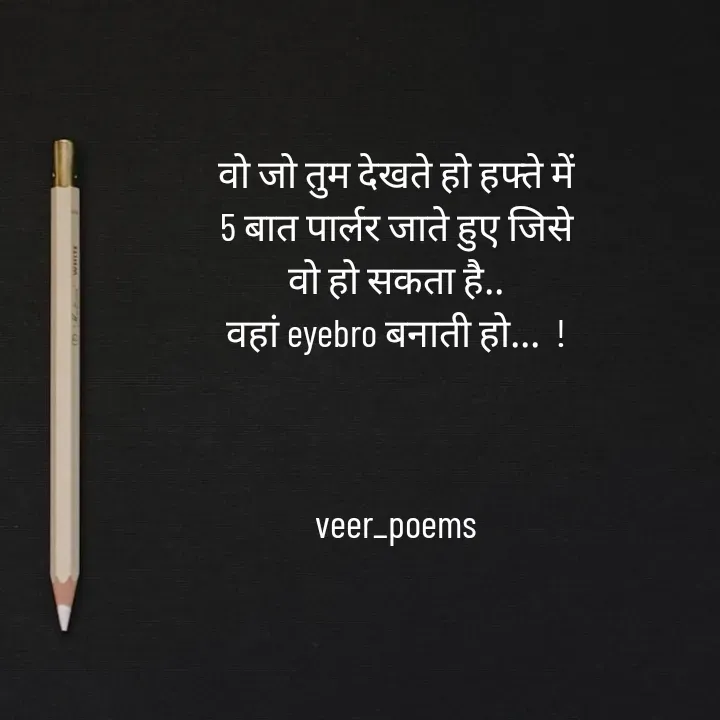 वो जो तुम देखते हो हफ्ते में
5 बात पार्लर जाते हुए जिसे
वो हो सकता है..
वहां eyebro बनाती हो... !
veer_poems